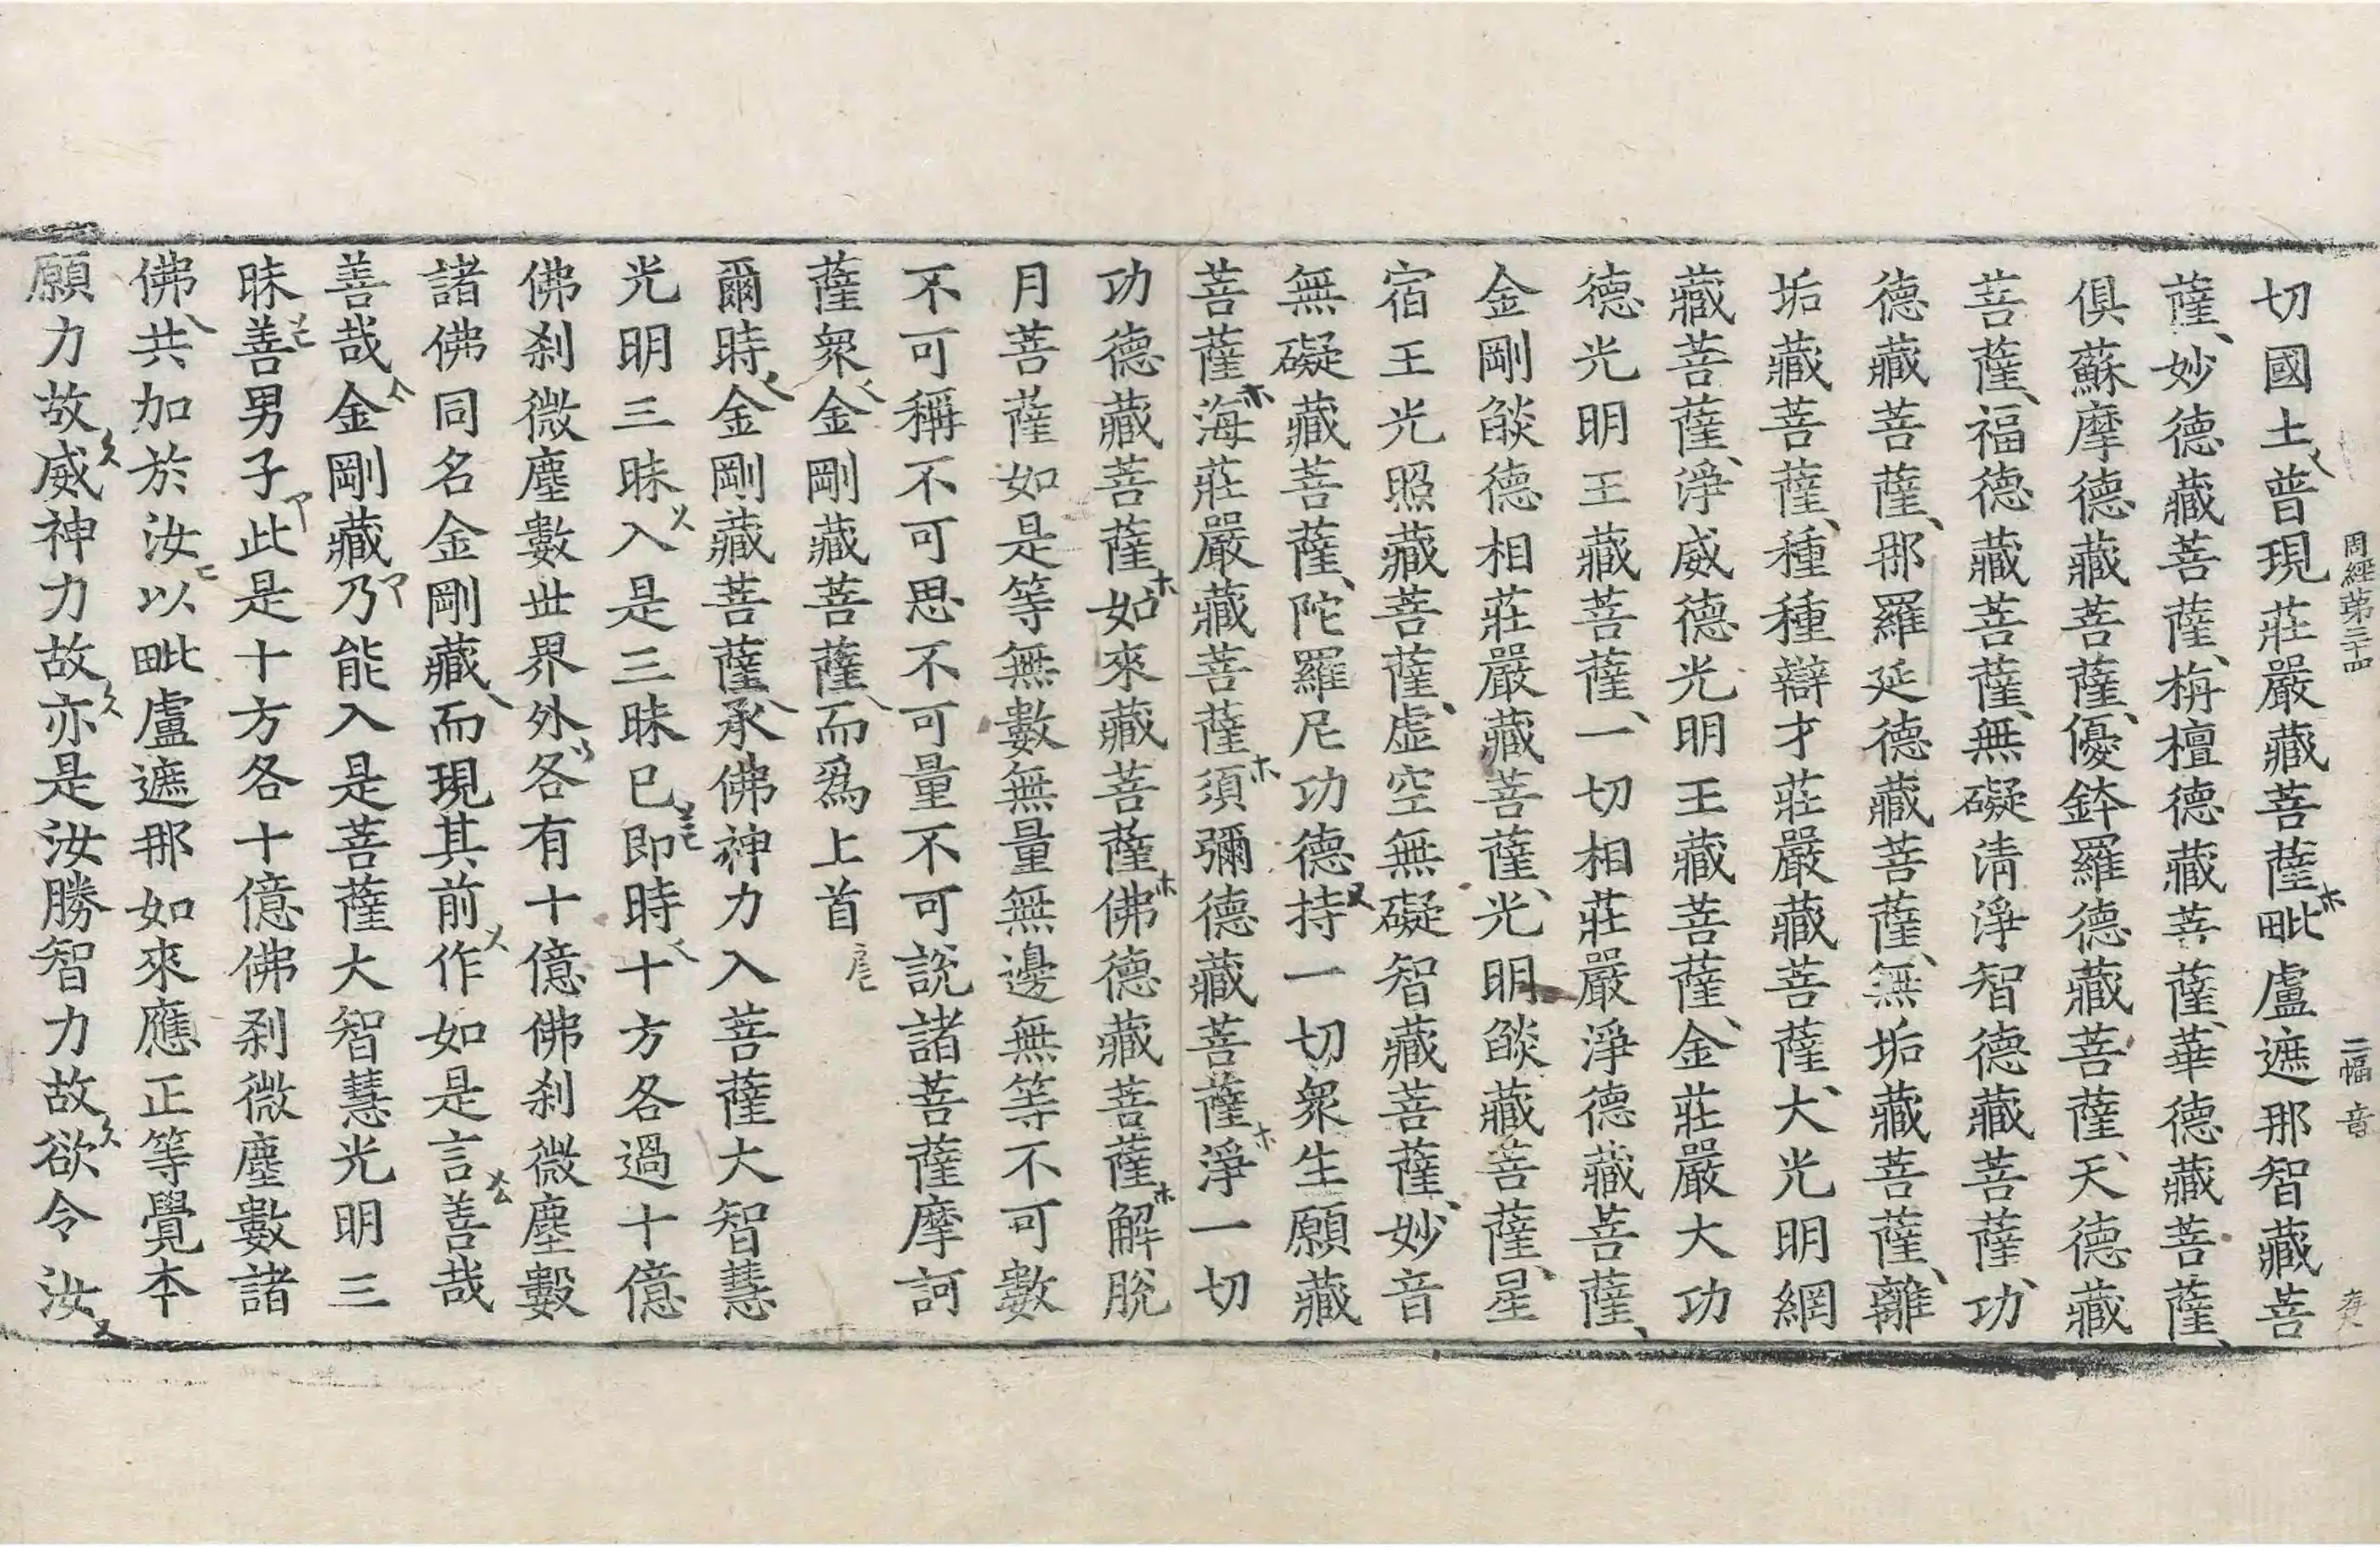 周經第三十四 二幅 音
切國土普現莊嚴藏菩薩毗盧遮那智藏菩
薩妙德藏菩薩栴檀德藏菩薩華德藏菩薩
俱蘇摩德藏菩薩優鉢羅德藏菩薩天德藏
菩薩福德藏菩薩無礙清淨智德藏菩薩功
德藏菩薩那羅延德藏菩薩無垢藏菩薩離
垢藏菩薩種種辯才莊嚴藏菩薩大光明網
藏菩薩淨威德光明王藏菩薩金莊嚴大功
德光明王藏菩薩一切相莊嚴淨德藏菩薩
金剛焰德相莊嚴藏菩薩光明焰藏菩薩星
宿王光照藏菩薩虛空無礙智藏菩薩妙音
無礙藏菩薩陀羅尼功德持一切眾生願藏
菩薩海莊嚴藏菩薩須彌德藏菩薩淨一切
功德藏菩薩如來藏菩薩佛德藏菩薩解脫
月菩薩如是等無數無量無邊無等不可數
不可稱不可思不可量不可說諸菩薩摩訶
薩眾金剛藏菩薩而爲上首
爾時金剛藏菩薩承佛神力入菩薩大智慧
光明三昧入是三昧已即時十方各過十億
佛剎微塵數世界外各有十億佛剎微塵數
諸佛同名金剛藏而現其前作如是言善哉
善哉金剛藏乃能入是菩薩大智慧光明三
昧善男子此是十方各十億佛剎微塵數諸
佛共加於汝以毗盧遮那如來應正等覺本
願力故威神力故亦是汝勝智力故欲令汝